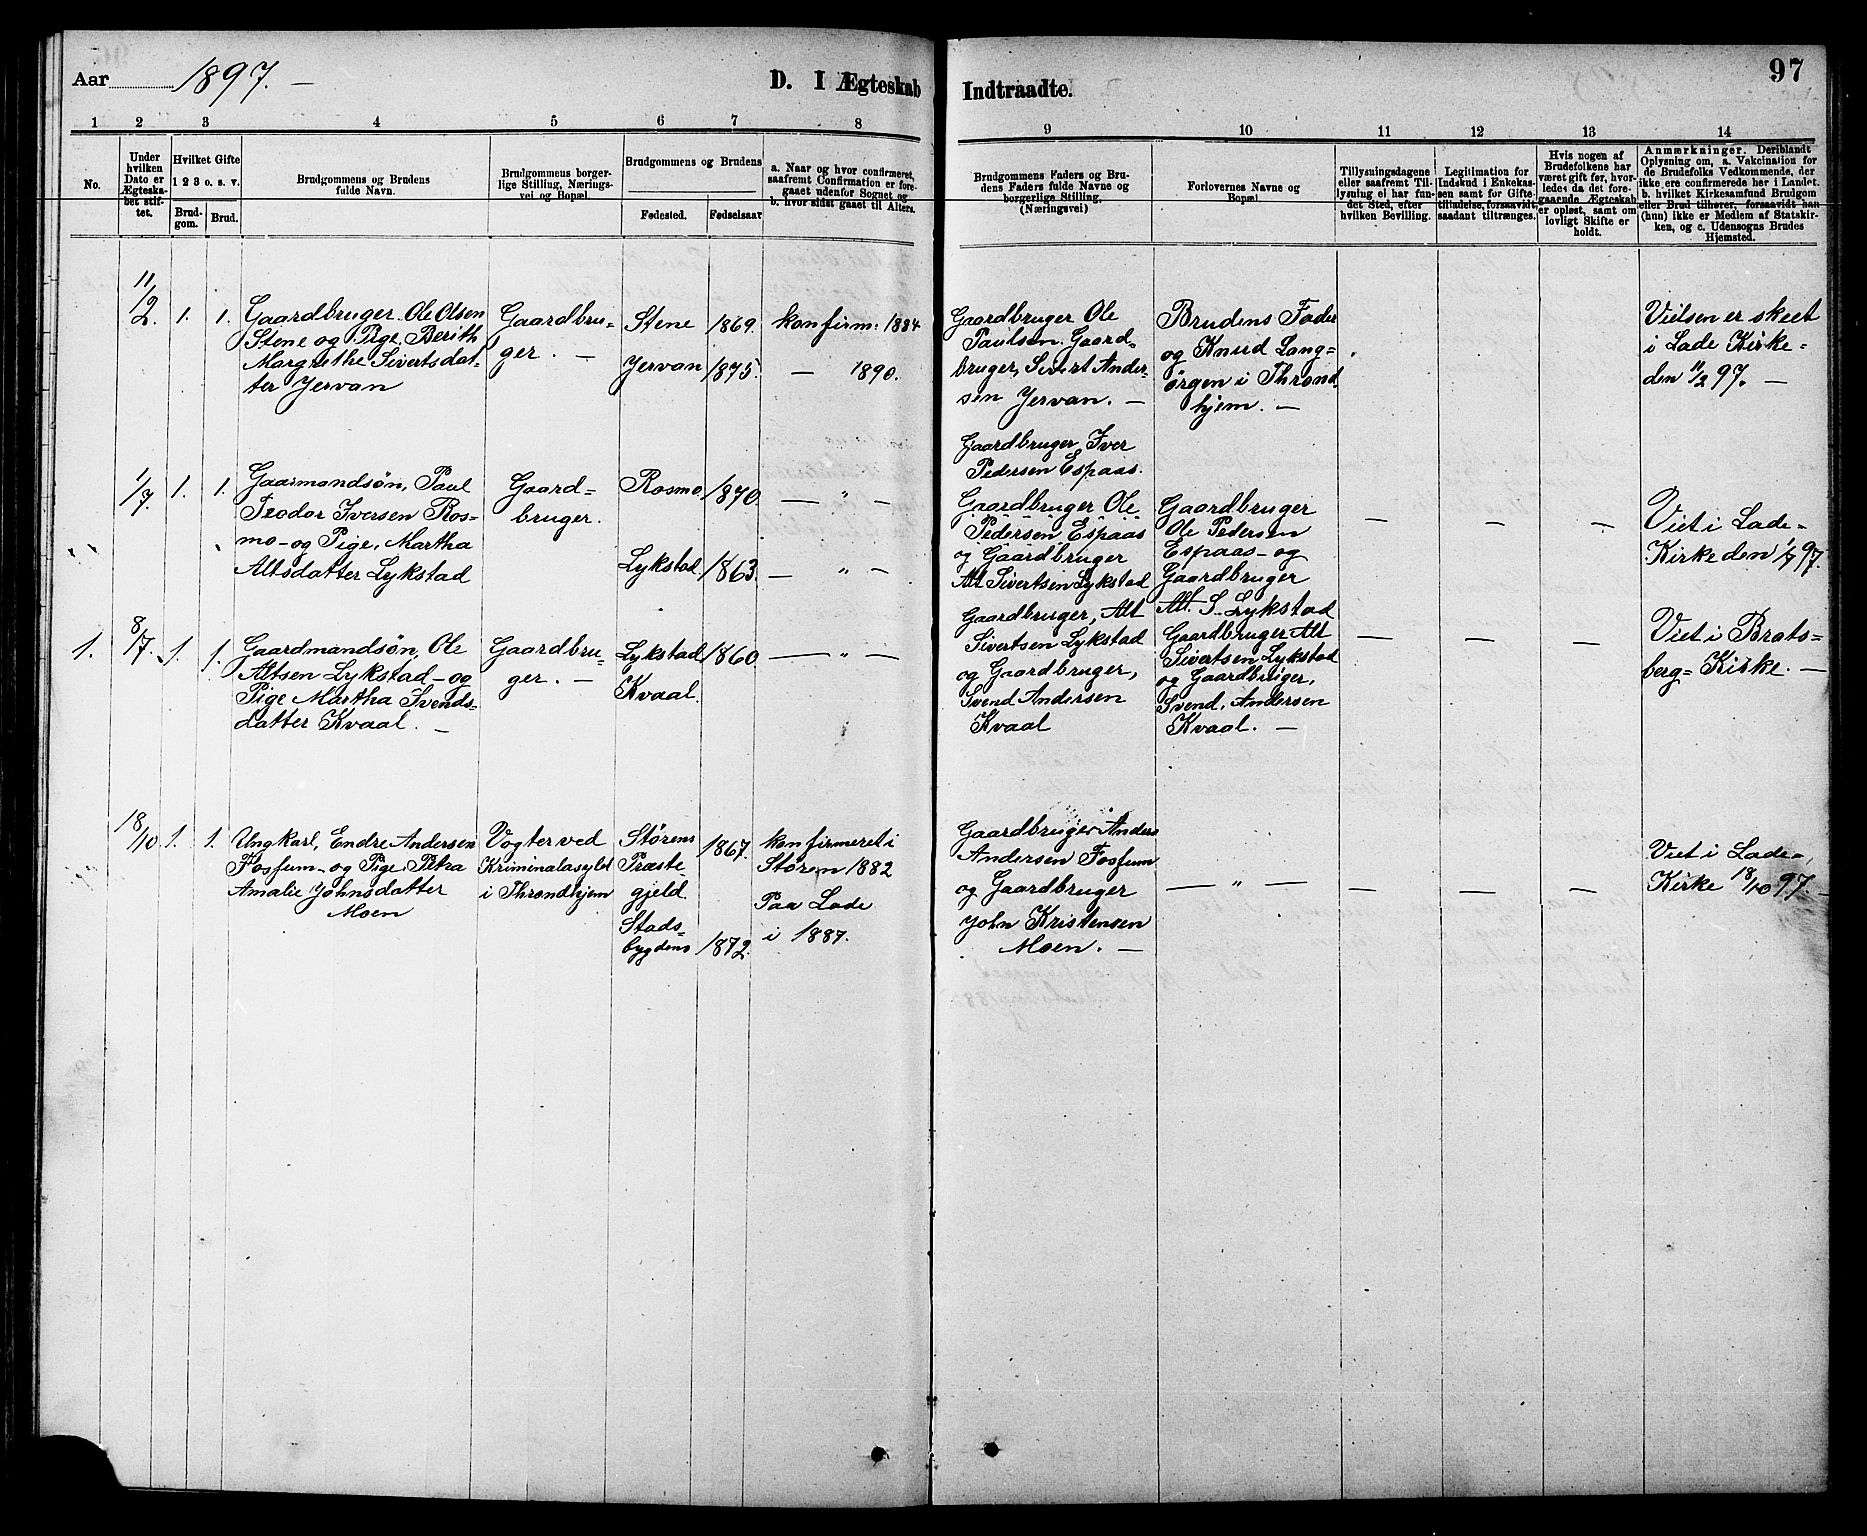 Aar 1897. —
D. I Ægteskab
Indtraadte.
97
1 2 3 4 5 6 7 8
9 10 11 12 13 14
No.
Under
hvilken
Dato er
Ægteska-
bet stif-
tet.
Hvilket Gifte
1 2 3 o. s. v.
Brud-
gom.
Brud.
Brudgommens og Brudens
fulde Navn.
Brudgommens borger-
lige Stilling, Nærings-
vei og Bopæl.
Brudgommens og Brudens
Fødested.
Fødselsaar
a. Naar og hvor confirmeret,
saafremt Confirmation er fore-
gaaet udenfor Sognet og
b. hvor sidst gaaet til Alters.
Brudgommens Faders og Bru-
dens Faders fulde Navne og
borgerlige Stilling,
(Næringsvei)
Forlovernes Navne og
Bopæl.
Tillysningsdagene
eller saafremt Til-
lysning ei har fun-
det Sted, efter
hvilken Bevilling.
Legitimation for
Indskud i Enkekas-
sen samt for Gifte-
tilladelse, forsaavidt
saadant tiltrænges.
Hvis nogen af
Brudefolkene har
været gift før, hvor-
ledes da det fore-
gaaende Ægteskab
er opløst, samt om
lovligt Skifte er
holdt.
Anmærkninger. Deriblandt
Oplysning om, a. Vakcination for
de Brudefolks Vedkommende, der
ikke ere confirmerede her i Landet.
b. hvilket Kirkesamfund Brudgom
eller Brud tilhører, forsaavidt han
(hun) ikke er Medlem af Statskir-
ken, og c. Udensogns Brudes
Hjemsted.
11/2. 1. 1.
Gaardbruger Ole Olsen
Stene og Pige, Berith
Margrethe Sivertsdat-
ter Jervan
Gaardbru-
ger. —
Stene 1869.
Jervan 1875.
konfirm: 1884
— 1890.
Gaardbruger Ole
Paulsen. Gaard-
bruger, Sivert Ander-
sen Jervan. —
Brudens Fader
og Knud Lang-
örgen i Thrond
hjem. —
Vielsen er skeet
i Lade Kirke-
den 11/2 97. —
1/7. 1. 1.
Gaarmandsøn, Paul
Teodor Iversen Ros-
mo- og Pige, Martha
Altsdatter Lykstad
Gaard-
bruger.
Rosmo. 1870. — " —
Lykstad. 1863. — " —
Gaardbruger, Iver
Pedersen Espaas.
Gaardbruger Ole
Pedersen Espaas
og Gaardbruger
Alt Sivertsen Lykstad
Gaardbruger
Ole Pedersen
Espaas- og
Gaardbruger
Alt. S. Lykstad
— — —
Viet i Lade-
Kirke den 1/7 97.
1. 8/7. 1. 1.
Gaardmandsøn, Ole
Altsen Lykstad- og
Pige Martha Svends-
datter Kvaal. —
Gaardbru-
ger. —
Lykstad 1860. — " —
Kvaal.
Gaardbruger, Alt
Sivertsen Lykstad
og Gaardbruger,
Svend Andersen
Kvaal
Gaardbruger Alt
Sivertsen Lykstad
og Gaardbruger,
Svend, Andersen
Kvaal. —
— — —
Viet i Brats-
berg- Kirke. —
18/10 1. 1.
Ungkarl, Endre Andersen
Fossum- og Pige, Petra
Amalie Johnsdatter
Moen
Vogter ved
Kriminalasylet
i Throndhjem
Störens
Præste
gjeld.
1867.
Stads-
bygdens 1872.
konfirmeret i
Stören 1882
Paa Lade
i 1887.
Gaardbruger Anders
Andersen Fossum
og Gaardbruger
John Kristensen
Moen. —
— " —
— — —
Viet i Lade-
Kirke 18/10 97. —